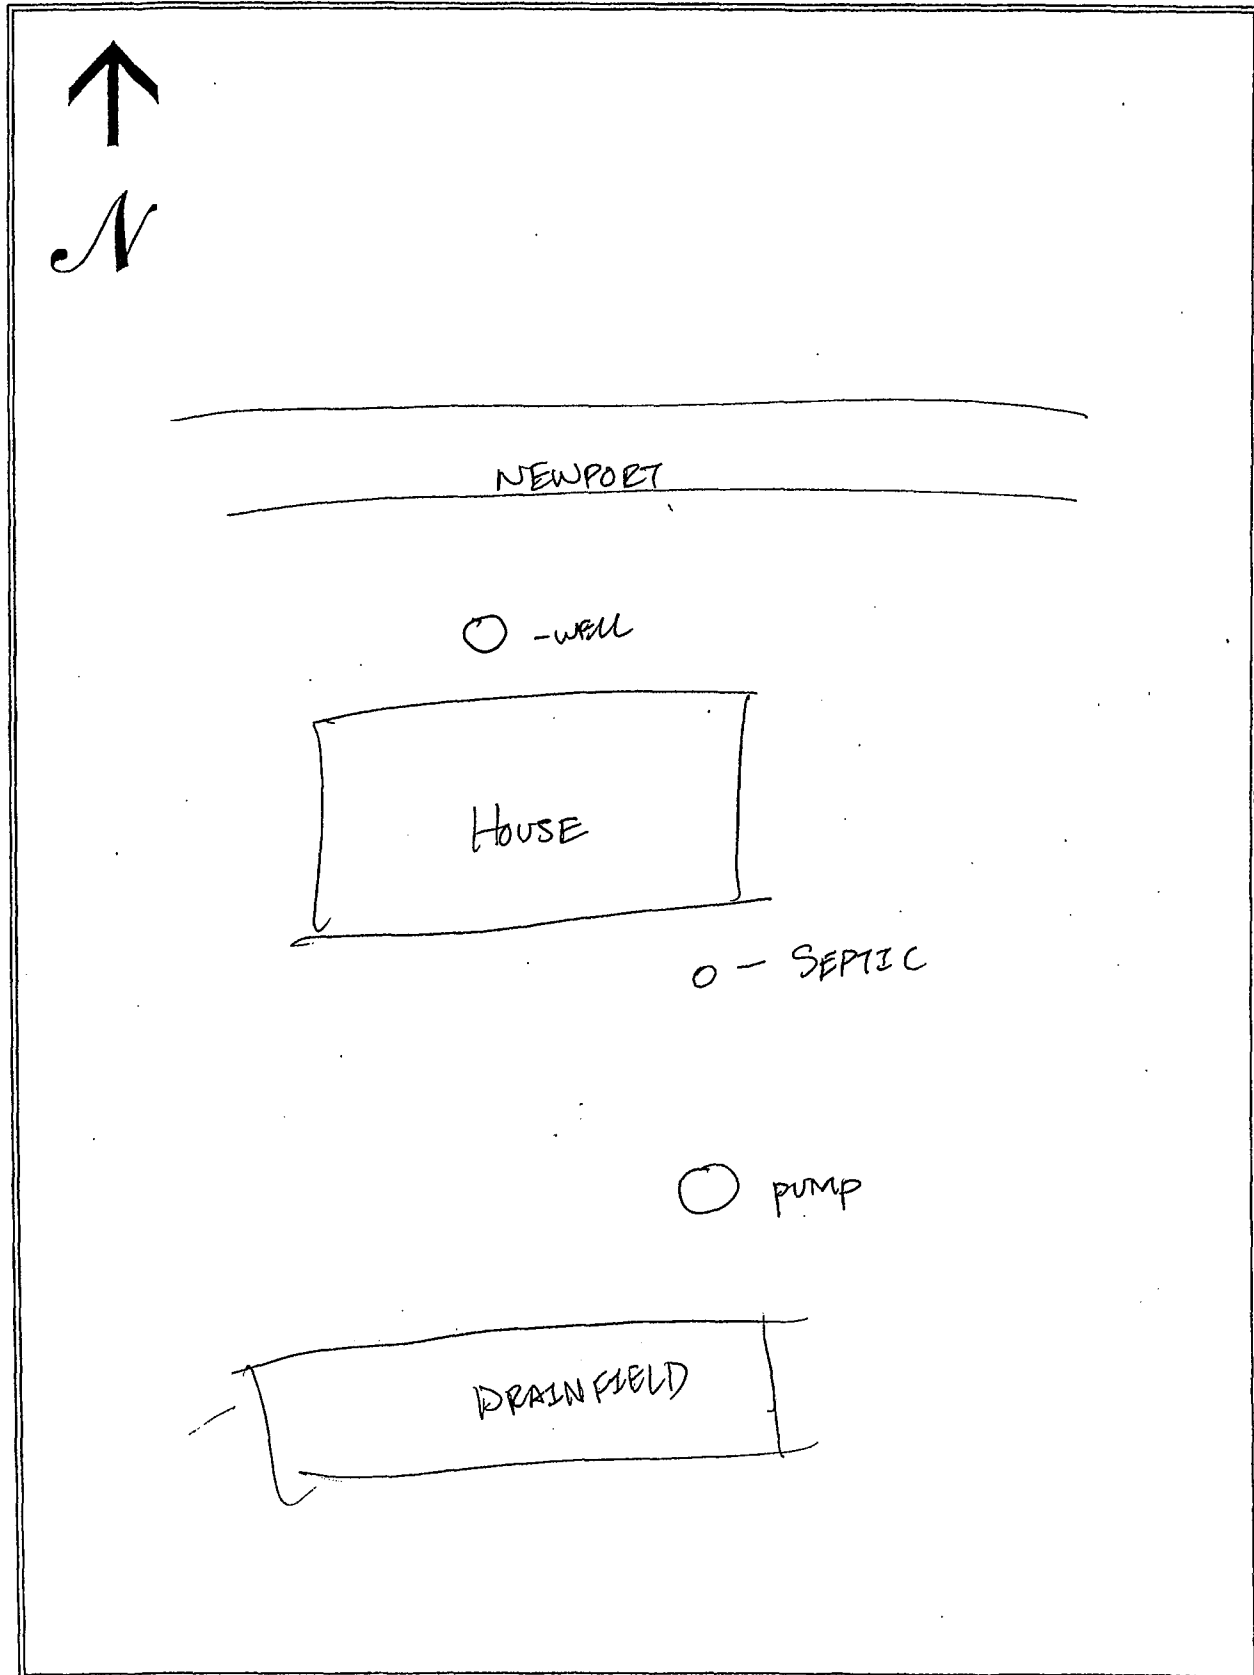 N
NEWPORT
-WELL
HOUSE
- SEPTIC
pump
DRAINFIELD